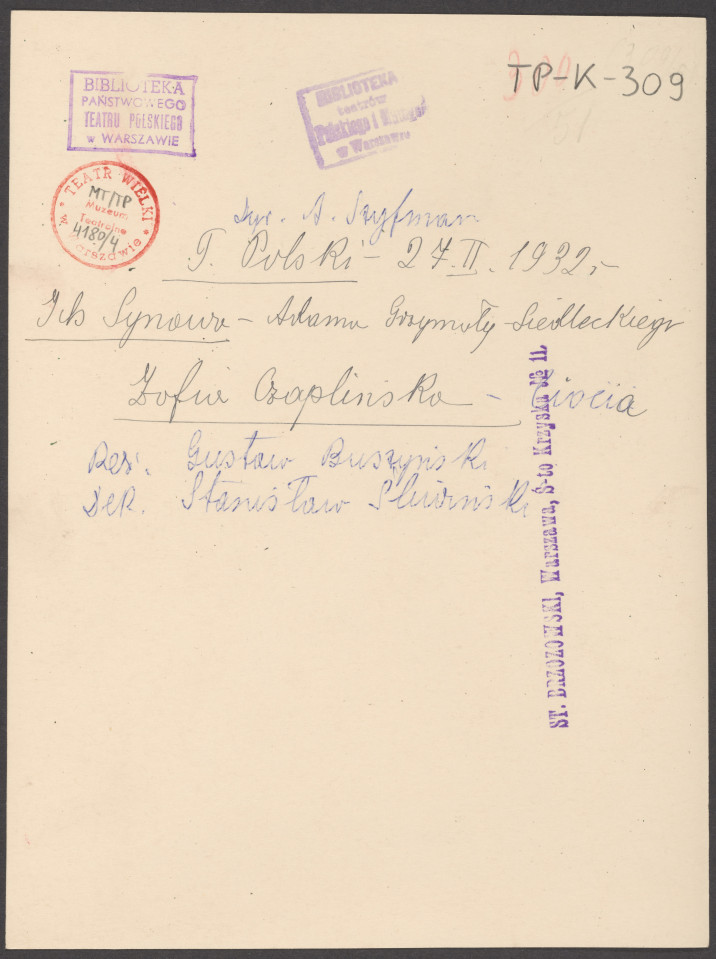 TP-K-309
BIBLIOTEKA
PAŃSTWOWEGO
TEATRU POLSKIEGO
w WARSZAWIE
BIBLIOTEKA
teatrów
Polskiego i
w Warszawie
TEATR WIELKI
w Warszawie
MT/TP
Muzeum
Teatralne
4180/4
Dyr. A. Szyfman
T. Polski - 27.II. 1932,-
Ich Synowa - Adama Grzymały-Siedleckiego
Zofia Czaplińska - Ciocia
Reż. Gustaw Buszyński
Dek. Stanisław Śliwiński
ST. BRZOZOWSKI, Warszawa, S-to Krzyska № 11.